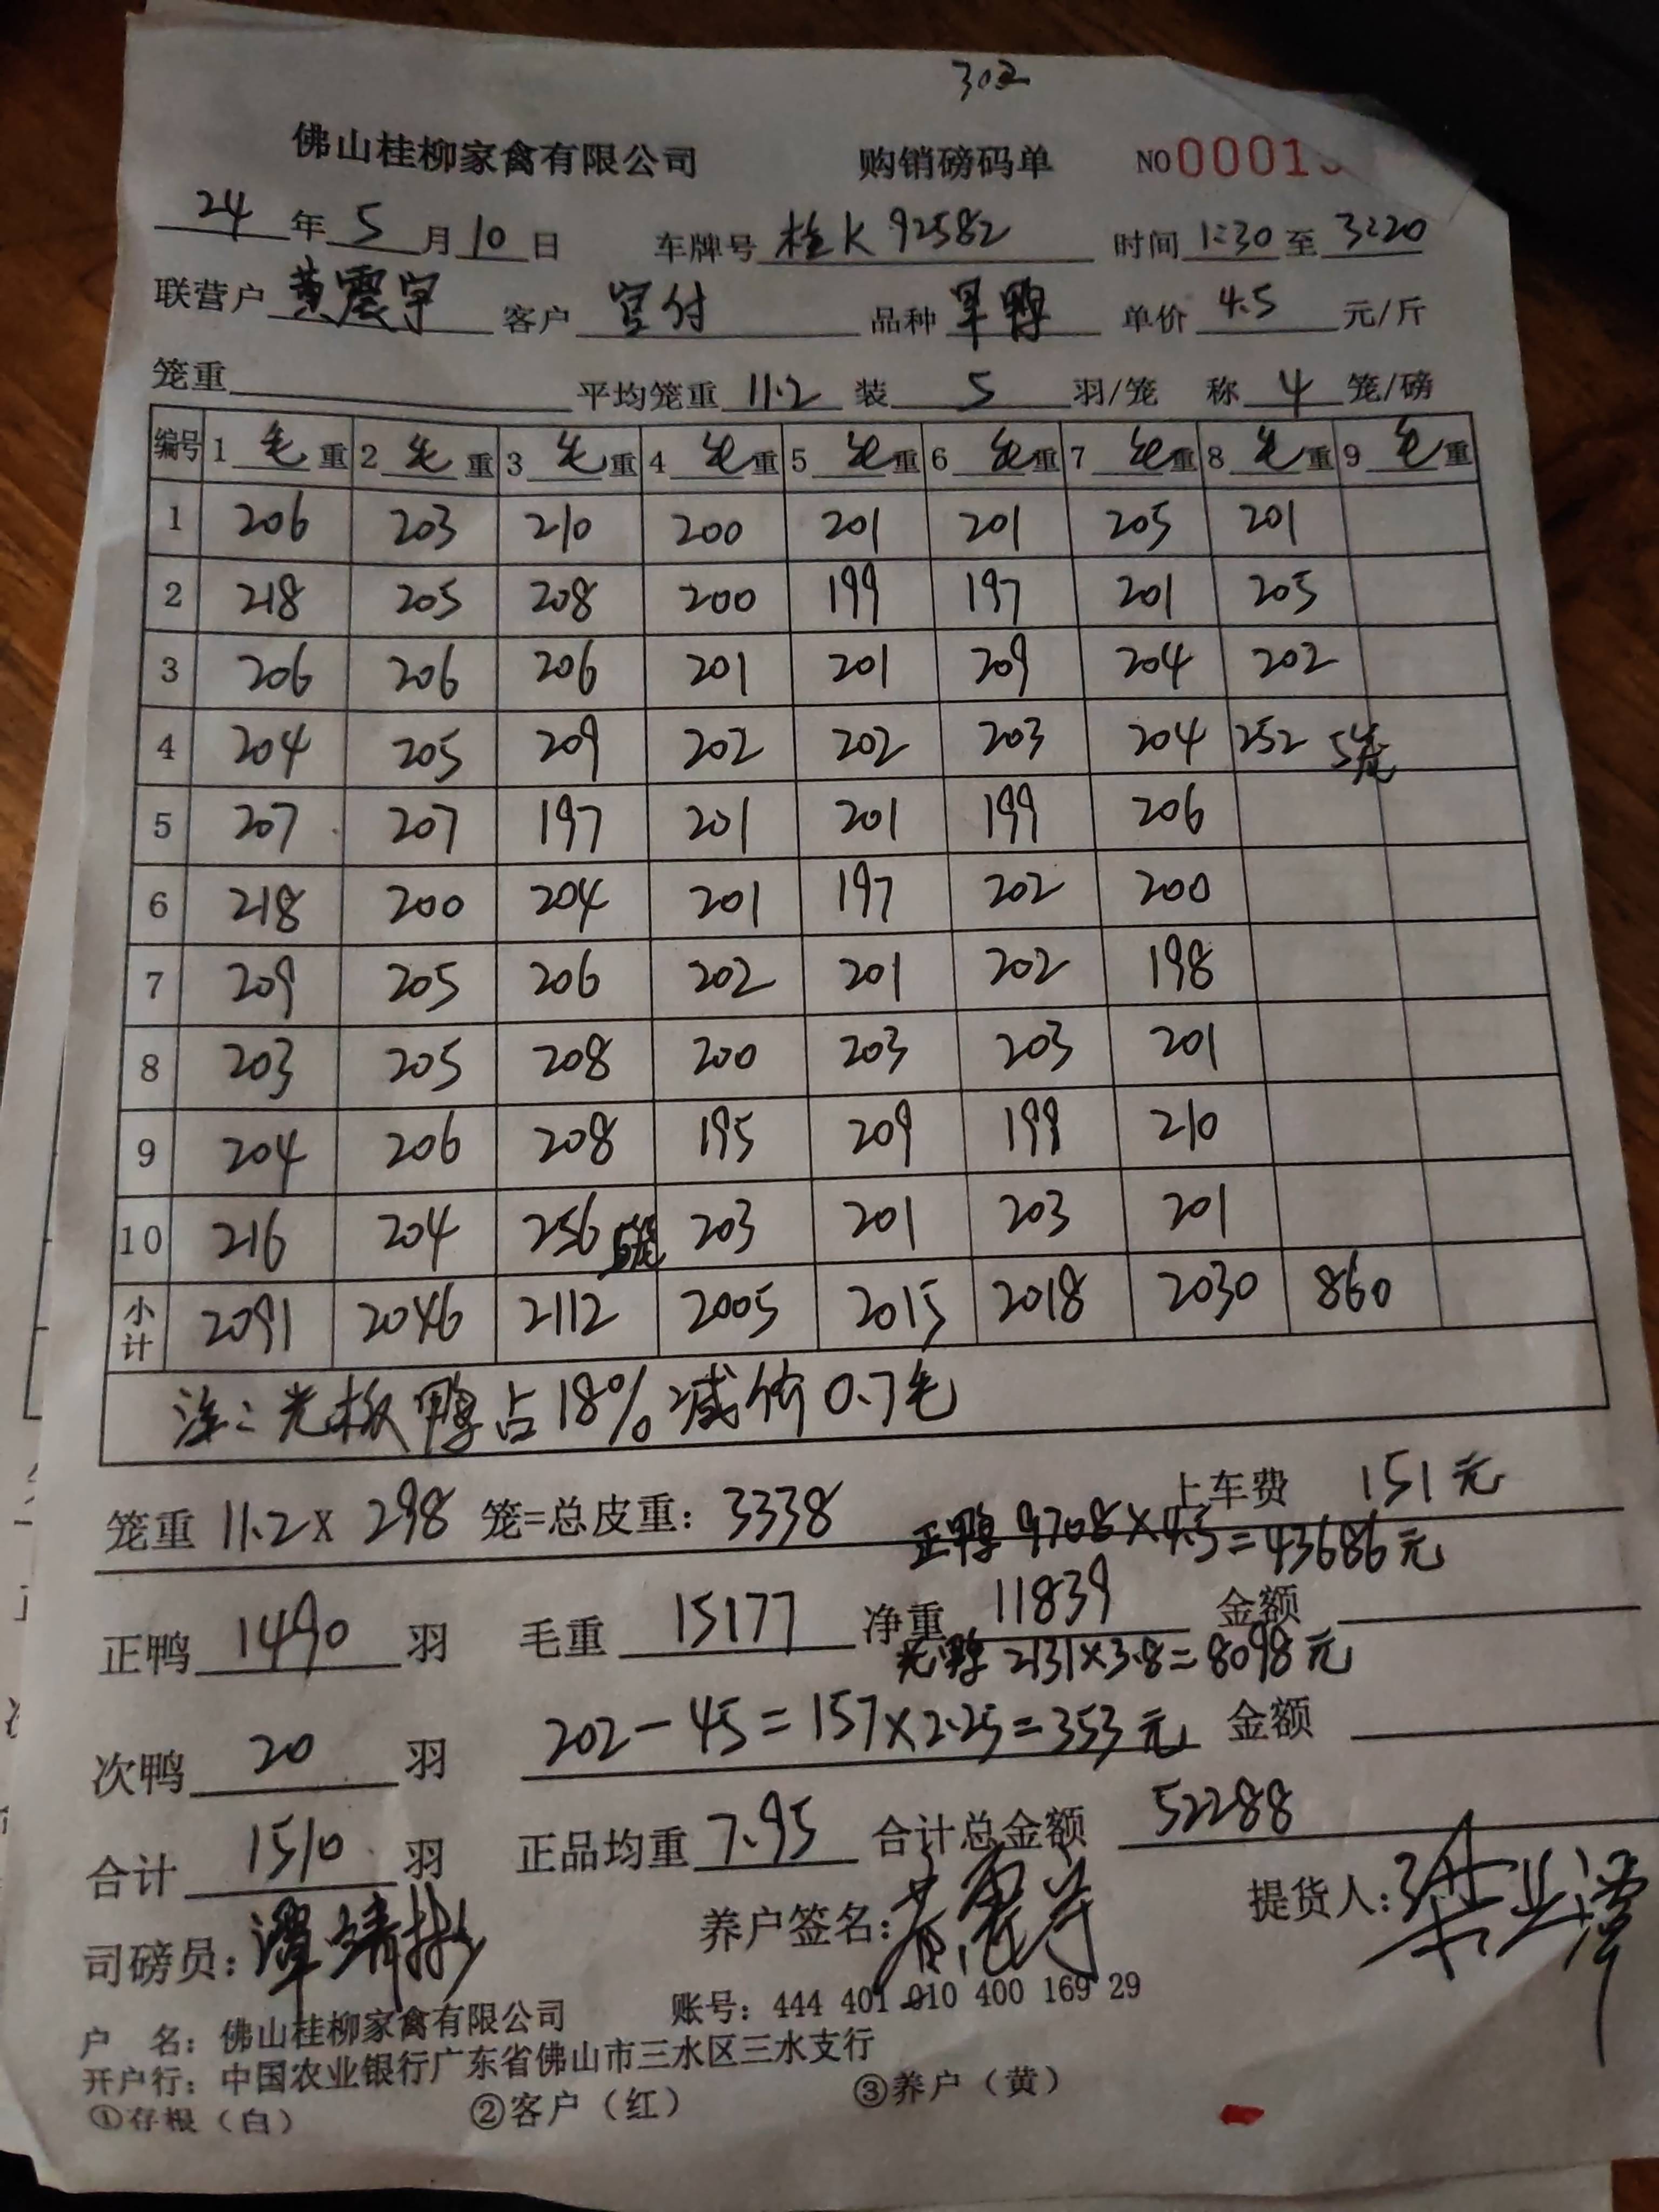 302
佛山桂柳家禽有限公司 购销磅码单 NO 0001
24年5月10日 车牌号 桂K 92582 时间 1:30 至 3:20
联营户 黄震宇 客户 官付 品种 旱鸭 单价 4.5 元/斤
笼重 平均笼重 11.2 装 5 羽/笼 称 4 笼/磅
编号 1 毛重 2 毛重 3 毛重 4 毛重 5 毛重 6 毛重 7 毛重 8 毛重 9 毛重
1 206 203 210 200 201 201 205 201
2 218 205 208 200 199 197 201 205
3 206 206 206 201 201 209 204 202
4 204 205 209 202 202 203 204 252 5笼
5 207 207 197 201 201 199 206
6 218 200 204 201 197 202 200
7 209 205 206 202 201 202 198
8 203 205 208 200 203 203 201
9 204 206 208 195 209 199 210
10 216 204 256 5笼 203 201 203 201
小计 2091 2046 2112 2005 2015 2018 2030 860
注:光板鸭占18%减价0.7毛
笼重 11.2 x 298 笼=总皮重: 3338 上车费 151元
正鸭 9708×4.5=43686元
正鸭 1490 羽 毛重 15177 净重 11839 金额
光鸭 2131×3.8=8098元
次鸭 20 羽 202-45=157×2.25=353元 金额
合计 1510 羽 正品均重 7.95 合计总金额 52288
司磅员: 养户签名: 黄震宇 提货人:
户 名: 佛山桂柳家禽有限公司 账号: 444 401 010 400 169 29
开户行: 中国农业银行广东省佛山市三水区三水支行
①存根(白) ②客户(红) ③养户(黄)